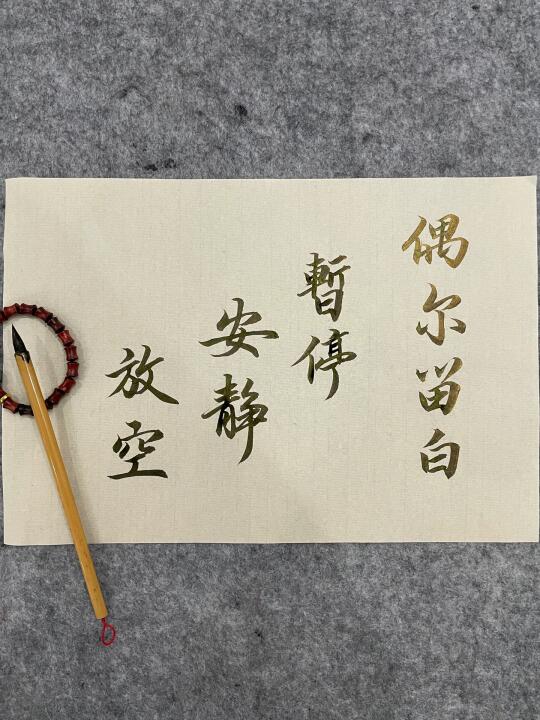 偶尔留白
暫停
安静
放空